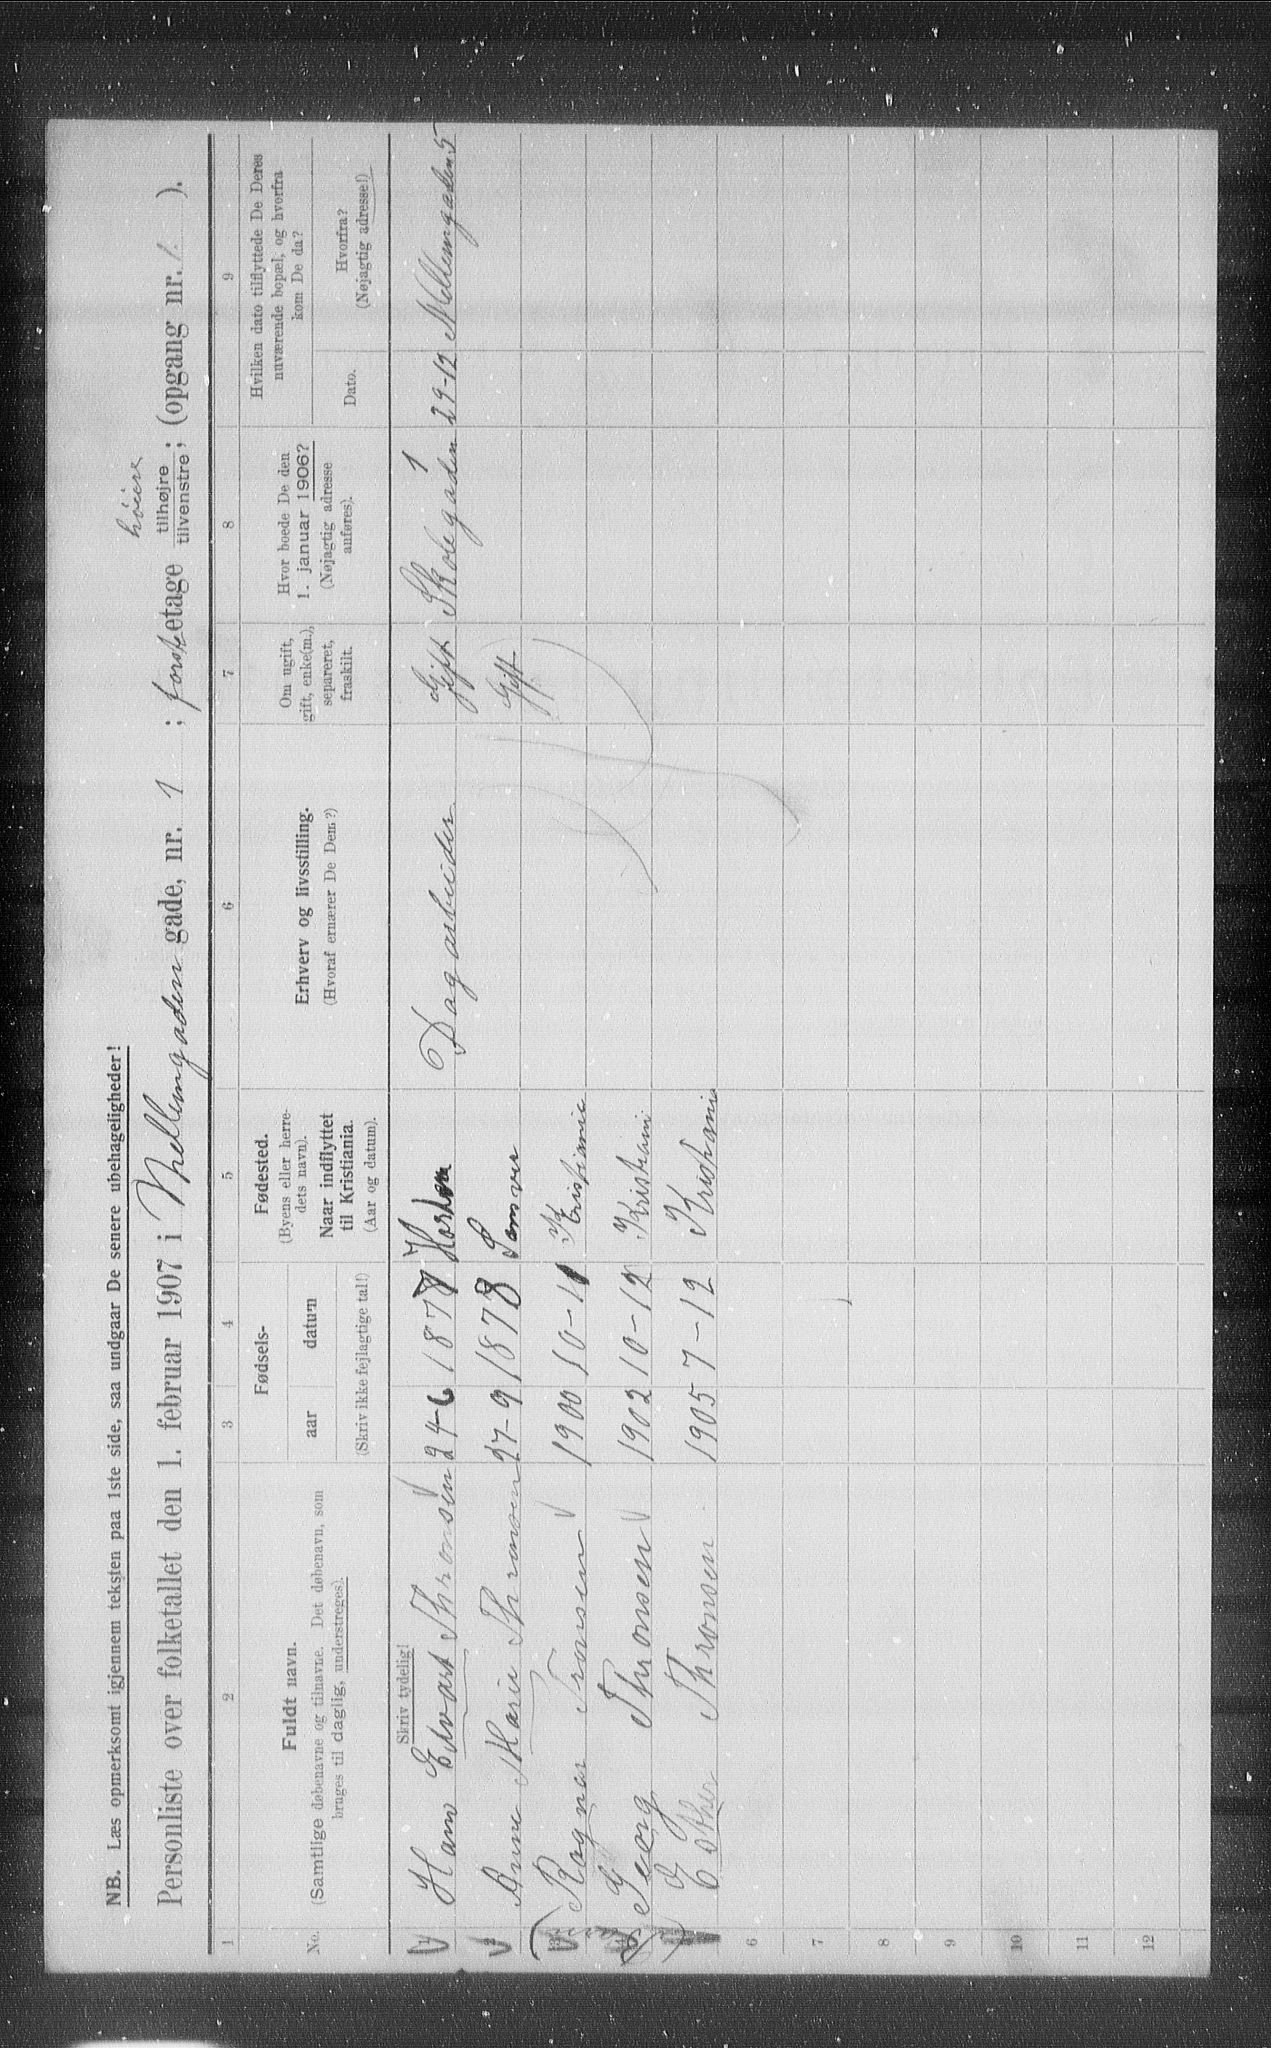 NB. Læs opmerksomt igjennem teksten paa 1ste side, saa undgaar De senere ubehageligheder!
høire
Personliste over folketallet den 1. februar 1907 i Mellemgaden gade, nr. 1 ; forste etage tilhøjre tilvenstre ; (opgang nr. 1. ).
1 2 3 4 5 6 7 8 9
No.
Fuldt navn.
(Samtlige døbenavne og tilnavne. Det døbenavn, som
bruges til daglig, understreges).
Fødsels-
aar datum
(Skriv ikke fejlagtige tal!)
Fødested.
(Byens eller herre-
dets navn).
Naar indflyttet
til Kristiania.
(Aar og datum).
Erhverv og livsstilling.
(Hvoraf ernærer De Dem?)
Om ugift,
gift, enke(m.),
separeret,
fraskilt.
Hvor boede De den
1. januar 1906?
(Nøjagtig adresse
anføres).
Hvilken dato tilflyttede De Deres
nuværende bopæl, og hvorfra
kom De da?
Dato.
Hvorfra?
(Nøjagtig adresse!)
Skriv tydelig!
1 Hans Edvart Thronsen 24-6 1877 Dagarbeider Gift Skolegaden 1 29-12 Mellemgaden 5
2 Anna Marie Thronsen 27-9 1878 Gift
3 Ragnar Tronsen 1900 10-11 Kristiania
4 Georg Thronsen 1902 10-12 Kristiani
5 Esther Thronsen 1905 7-12 Kristiani
6
7
8
9
10
11
12